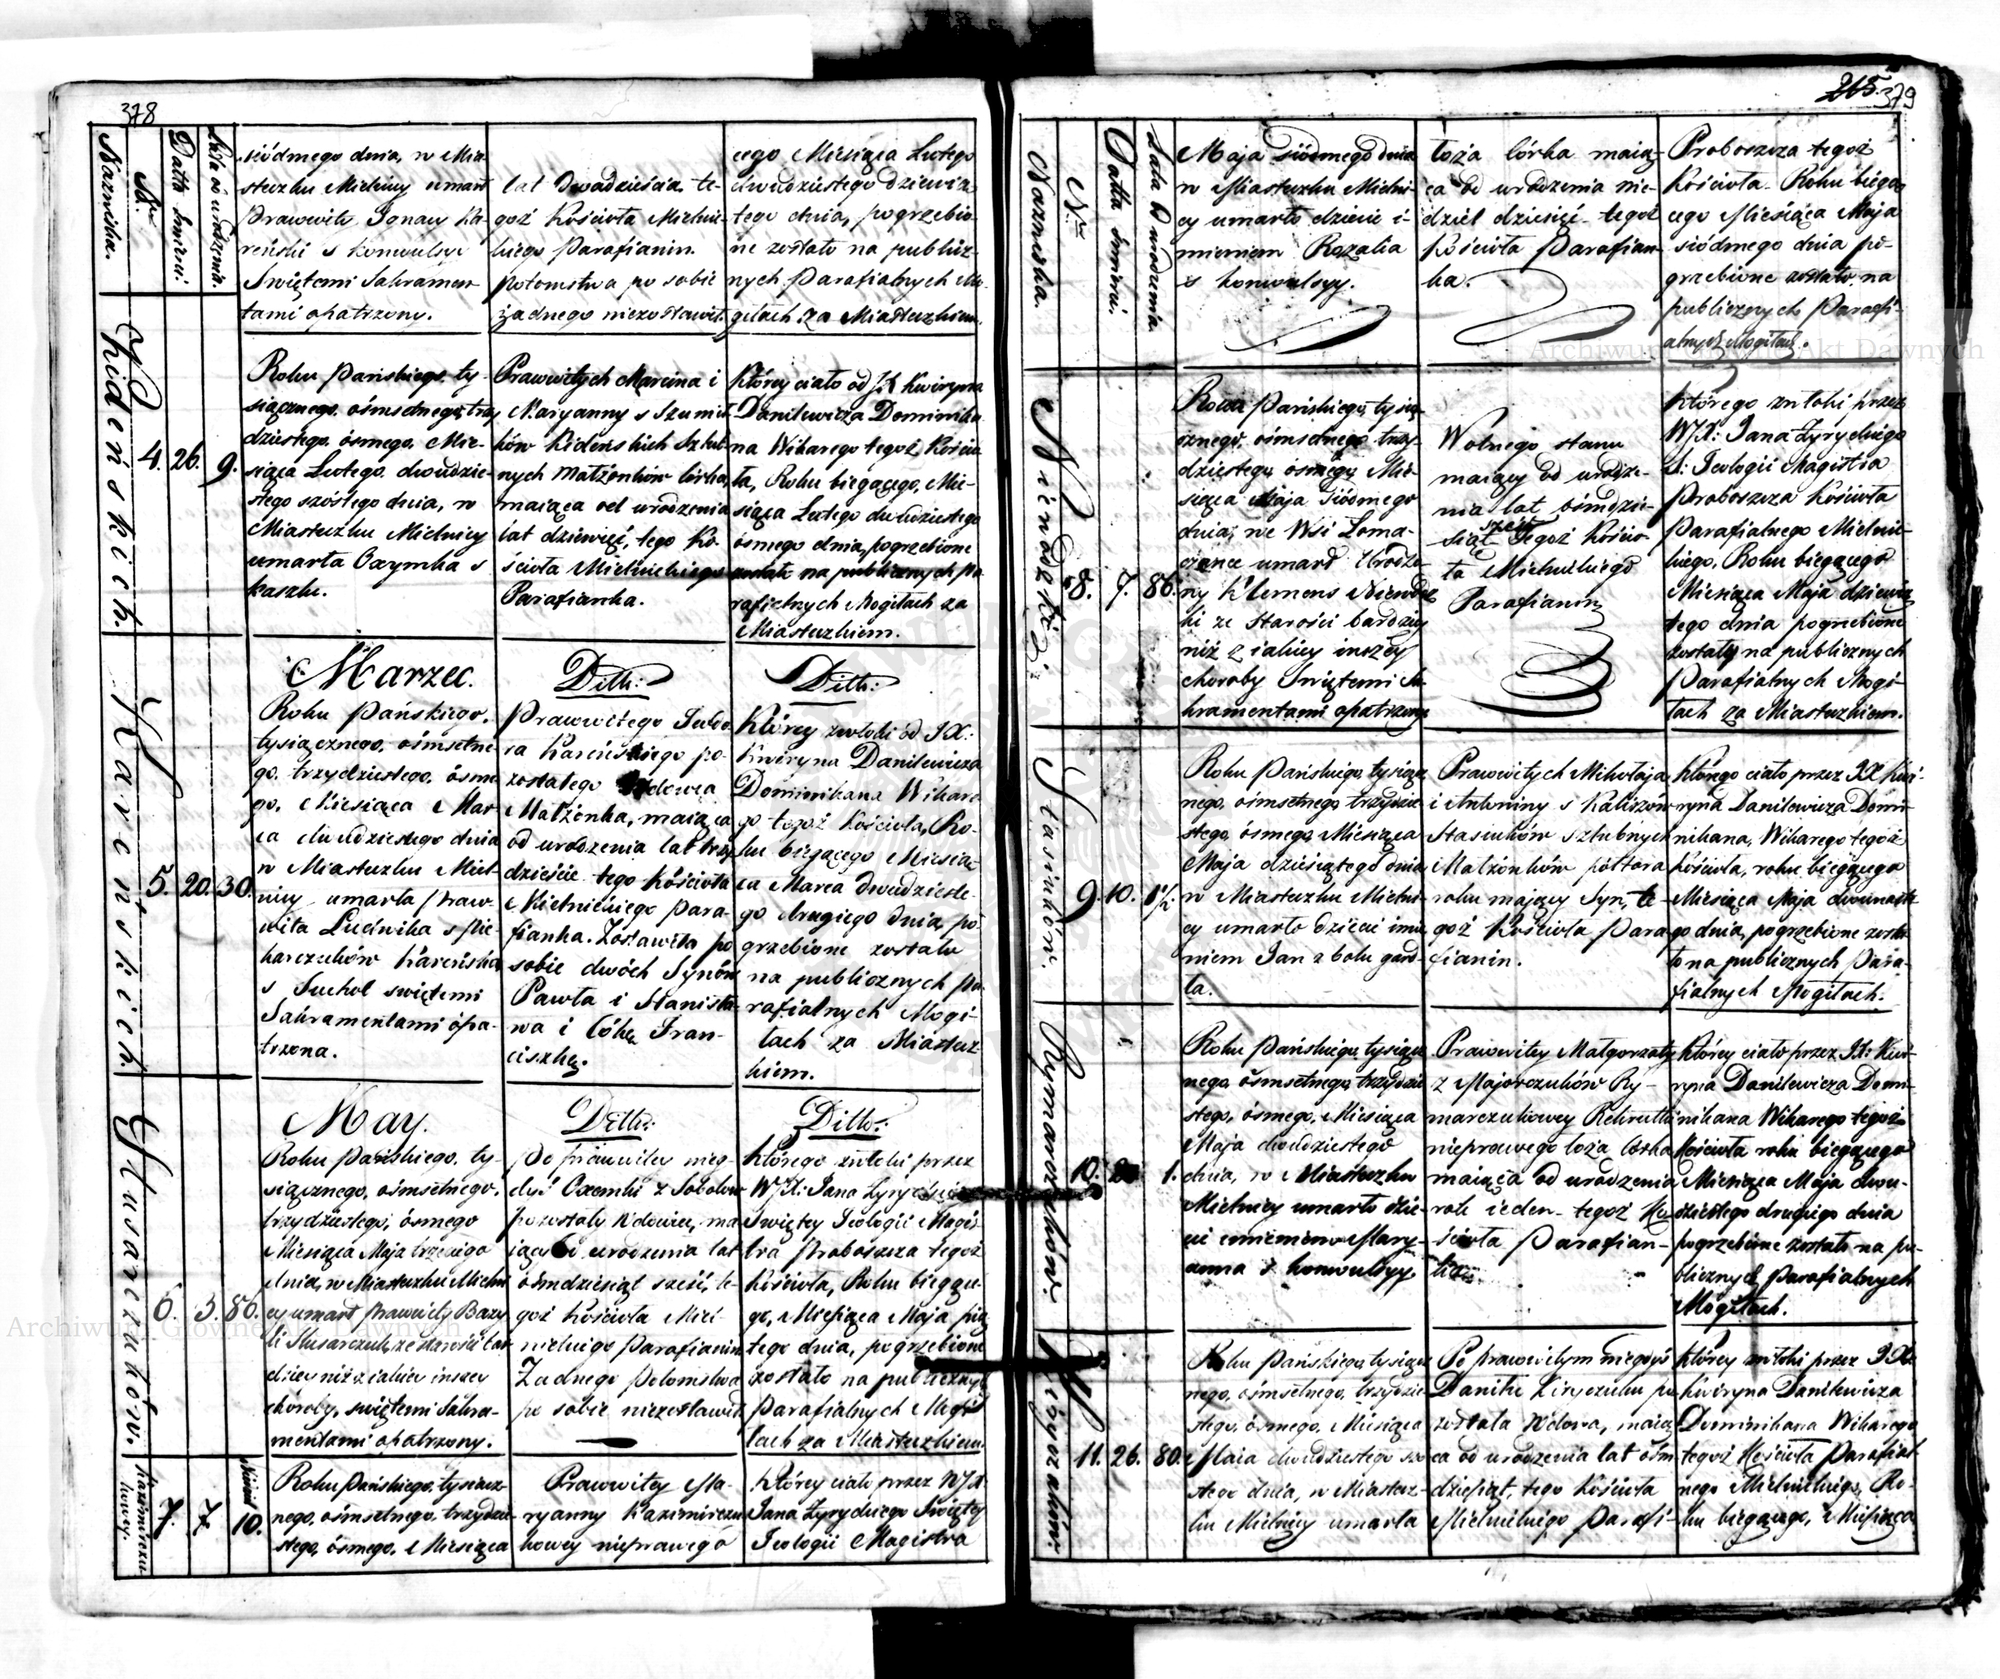 378
Nazwiska.
Nr.
Datta śmierci.
Lata od urodzenia.
siódmego dnia, w Mia-
steczku Mielnicy umarł
Prawowity Ignacy Ka-
reński s konwulsyi
Świętemi Sakramen-
tami opatrzony.
lat dwadzieścia te-
goż Kościoła Mielnic-
kiego Parafianin.
potomstwa po sobie
żadnego niezostawił.
cego Miesiąca Lutego
dwudziestego dziewią-
tego dnia, pogrzebio-
ne zostało na publicz-
nych Parafialnych Mo-
giłach za Miasteczkiem.
Kideńskich.
4. 26. 9.
Roku Pańskiego, ty-
siącznego, ośmsetnego, trzy
dziestego, ósmego, Mie-
siąca Lutego, dwudzie-
stego szóstego dnia, w
Miasteczku Mielnicy
umarła Oxymka s
kaszlu.
Prawowitych Marcina i
Maryanny s Szumił-
ków Kideńskich Szlub-
nych Małżonków córka,
maiąca od urodzenia
lat dziewięć, tego Ko-
ścioła Mielnickiego
Parafianka.
Którey ciało od JX Kwiryna
Danilewicza Dominika-
na Wikarego tegoż Kościo-
ła, Roku biegącego, Mie-
siąca Lutego dwudziestego
ósmego dnia, pogrzebione
zostało na publicznych Pa-
rafialnych Mogiłach za
Miasteczkiem.
Kareńskich.
5. 20. 30.
Marzec.
Roku Pańskiego,
tysiącznego, ośmsetne-
go, trzydziestego, ósme-
go, Miesiąca Mar-
ca dwudziestego dnia
w Miasteczku Miel-
nicy umarła praw-
wita Ludwika s Mie-
karczuków Kareńska
s Suchot świętemi
Sakramentami opa-
trzona.
Ditto:
Prawowitego
Kareńskiego po-
zostałego Wdowca
Małżonka, maiąca
od urodzenia lat trzy
dzieście tego Kościoła
Mielnickiego Para-
fianka. Zostawiła po
sobie dwóch Synów
Pawła i Stanisła-
wa i Córkę Fran-
ciszkę.
Ditto:
Którey zwłoki od JX:
Kwiryna Danilewicza
Dominikana Wikare-
go tegoż Kościoła, Ro-
ku biegącego Miesią-
ca Marca dwudzieste-
go drugiego dnia, po-
grzebione zostało
na publicznych Pa-
rafialnych Mogi-
łach za Miastecz-
kiem.
Slusarczuków.
6. 3. 86.
May.
Roku Pańskiego, ty-
siącznego, ośmsetnego,
trzydziestego, ósmego
Miesiąca Maja trzeciego
dnia, w Miasteczku Mielni
cy umarł Prawowity Bazy
li Slusarczuk, ze starości bar
dziey niż z iakiey inszey
choroby, świętemi Sakra-
mentami opatrzony.
Ditto:
Po prawowitey nieg-
dyś Oxemki z Sobolow
pozostały Wdowiec, ma
iący od urodzenia lat
ośmdziesiąt sześć, te-
goż Kościoła Miel-
nickiego Parafianin
Żadnego Potomstwa
po sobie niezostawił
Ditto:
Którego zwłoki przez
WJX: Jana Żyryckiego
Świętey Teologii Magis-
tra Proboszcza tegoż
Kościoła, Roku biegące-
go, Miesiąca Maja pią
tego dnia, pogrzebione
zostało na publicznych
Parafialnych Mogi
łach za Miasteczkiem.
7. 7. 10.
Roku Pańskiego, tysiącz-
nego, ośmsetnego, trzydzie-
stego, ósmego, Miesiąca
Prawowitey Ma-
ryanny Kazimirczu
kowey nieprawego
Którey ciało przez WJX
Jana Żyryckiego Świętey
Teologii Magistra
215. 379
Nazwiska.
Nr.
Datta śmierci.
Lata od urodzenia
Maja siódmego dnia
w Miasteczku Mielni-
cy umarło dziecie i-
mieniem Rozalia
s konwulsyy.
łoża córka maią-
ca od urodzenia nie-
dziel dziesięć tegoż
Kościoła Parafian-
ka.
Proboszcza tegoż
Kościoła Roku biegą-
cego Miesiąca Maja
siódmego dnia po-
grzebione zostało na
publicznych Parafi-
alnych Mogiłach.
8. 7. 86.
Roku Pańskiego, tysią-
cznego, ośmsetnego, trzy-
dziestego, ósmego, Mie-
siąca Maja siódmego
dnia, we Wsi Łoma-
czance umarł Urodzo-
ny Klemens Niewdęc
ki ze starości bardziey
niż z iakiey inszey
choroby Świętemi Sa-
kramentami opatrzony
Wolnego stanu
maiący od urodze-
nia lat ośmdzie-
siąt sześć Tegoż Kościo-
ła Mielnickiego
Parafianin
którego zwłoki przez
WJX: Jana Żyryckiego
S: Teologii Magistra
Proboszcza Kościoła
Parafialnego Mielnic-
kiego, Roku biegącego
Miesiąca Maja dziewią-
tego dnia pogrzebione
zostały na publicznych
Parafialnych Mogi-
łach za Miasteczkiem.
Stasiuków.
9. 10. 1½
Roku Pańskiego, tysiącz
nego, ośmsetnego trzydzie
stego, ósmego, Miesiąca
Maja dziesiątego dnia
w Miasteczku Mielni-
cy umarło dziecie imie
niem Jan z bolu gard-
ła.
Prawowitych Mikołaja
i Antoniny s Kaliszów
Stasiuków szlubnych
Małżonków półtora
roku maiący Syn, te-
goż Kościoła Para
fianin.
Którego ciało przez JX Kwi-
ryna Danilewicza Domi-
nikana, Wikarego tegoż
Kościoła, roku biegącego
Miesiąca Maja dwunaste
go dnia, pogrzebione zosta
ło na publicznych Para-
fialnych Mogiłach.
Rymarczuków.
10. 1.
Roku Pańskiego, tysiącz
nego, ośmsetnego, trzydzie
stego, ósmego, Miesiąca
Maja dwudziestego
dnia, w Miasteczku
Mielnicy umarło dzie-
cie imieniem Mary-
anna s konwulsyy.
Prawowitey Małgorzaty
z Majorczuków Ry-
marczukowey Rekrutki
nieprawego łoża, córka
maiąca od urodzenia
rok ieden tegoż Ko-
ścioła Parafian-
ka.
Którey ciało przez JX: Kwi-
ryna Danilewicza Domi-
nikana Wikarego tegoż
Kościoła roku biegącego
Miesiąca Maja dwu-
dziestego drugiego dnia
pogrzebione zostało na pu-
blicznych Parafialnych
Mogiłach.
Kiryczuków.
11. 26. 80.
Roku Pańskiego, tysiącz
nego, ośmsetnego, trzydzie
stego, ósmego, Miesiąca
Maia dwudziestego szó
stego dnia, w Miastecz-
ku Mielnicy umarła
Po prawowitym niegdyś
Danile Kiryczuku po
została Wdowa, maią
ca od urodzenia lat ośm
dziesiąt, tego Kościoła
Mielnickiego Parafi-
Którey zwłoki przez JX
Kwiryna Danilewicza
Dominikana Wikarego
tegoż Kościoła Parafial-
nego Mielnickiego, Ro-
ku biegącego, Miesiąca
Archiwum Główne Akt Dawnych
Archiwum Główne Akt Dawnych